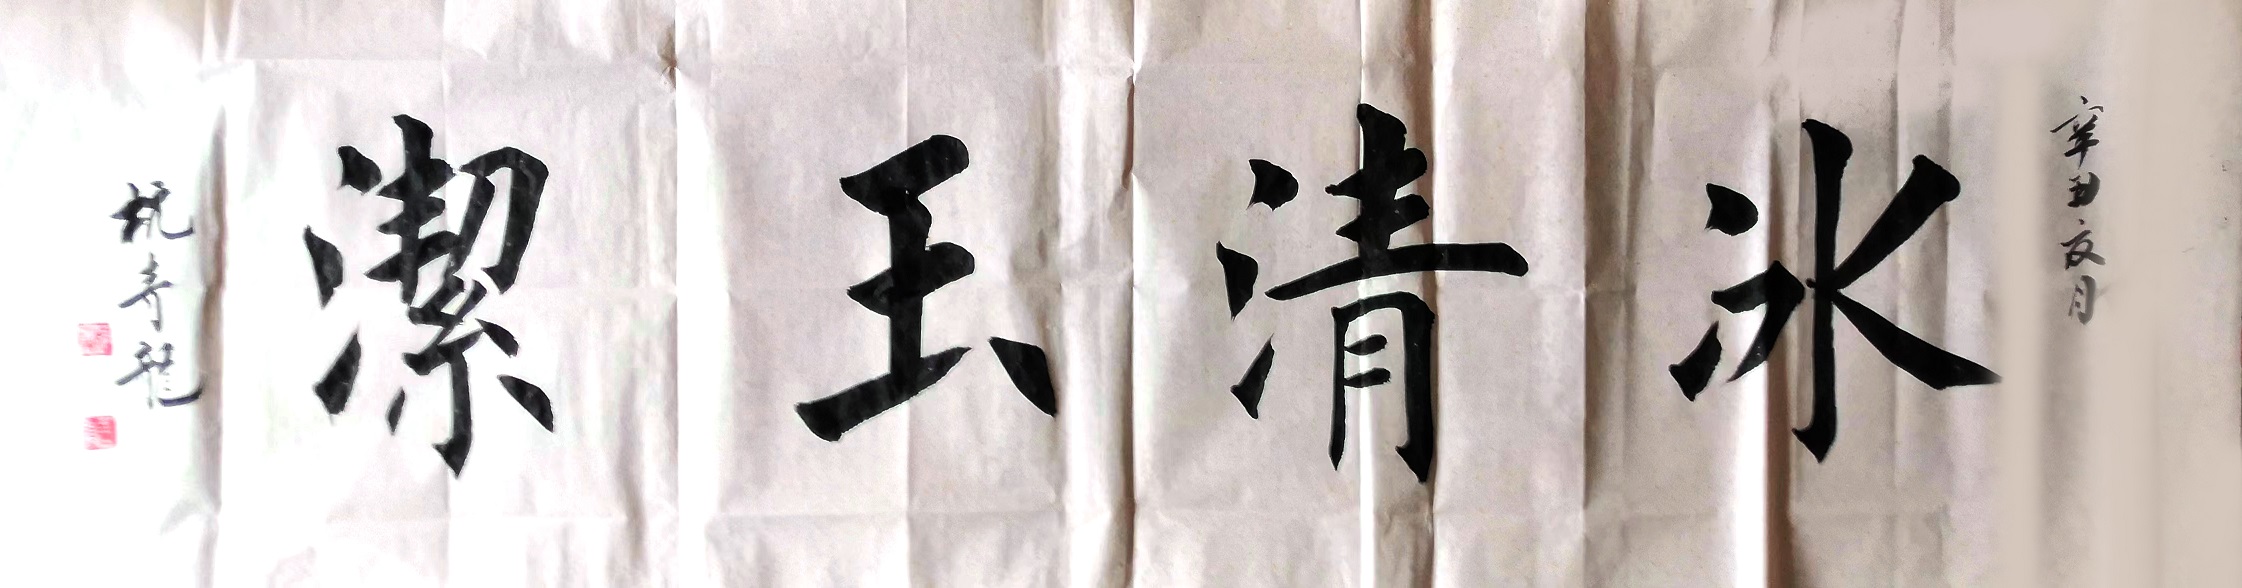 辛丑夜月
冰清玉潔
杭奇龍